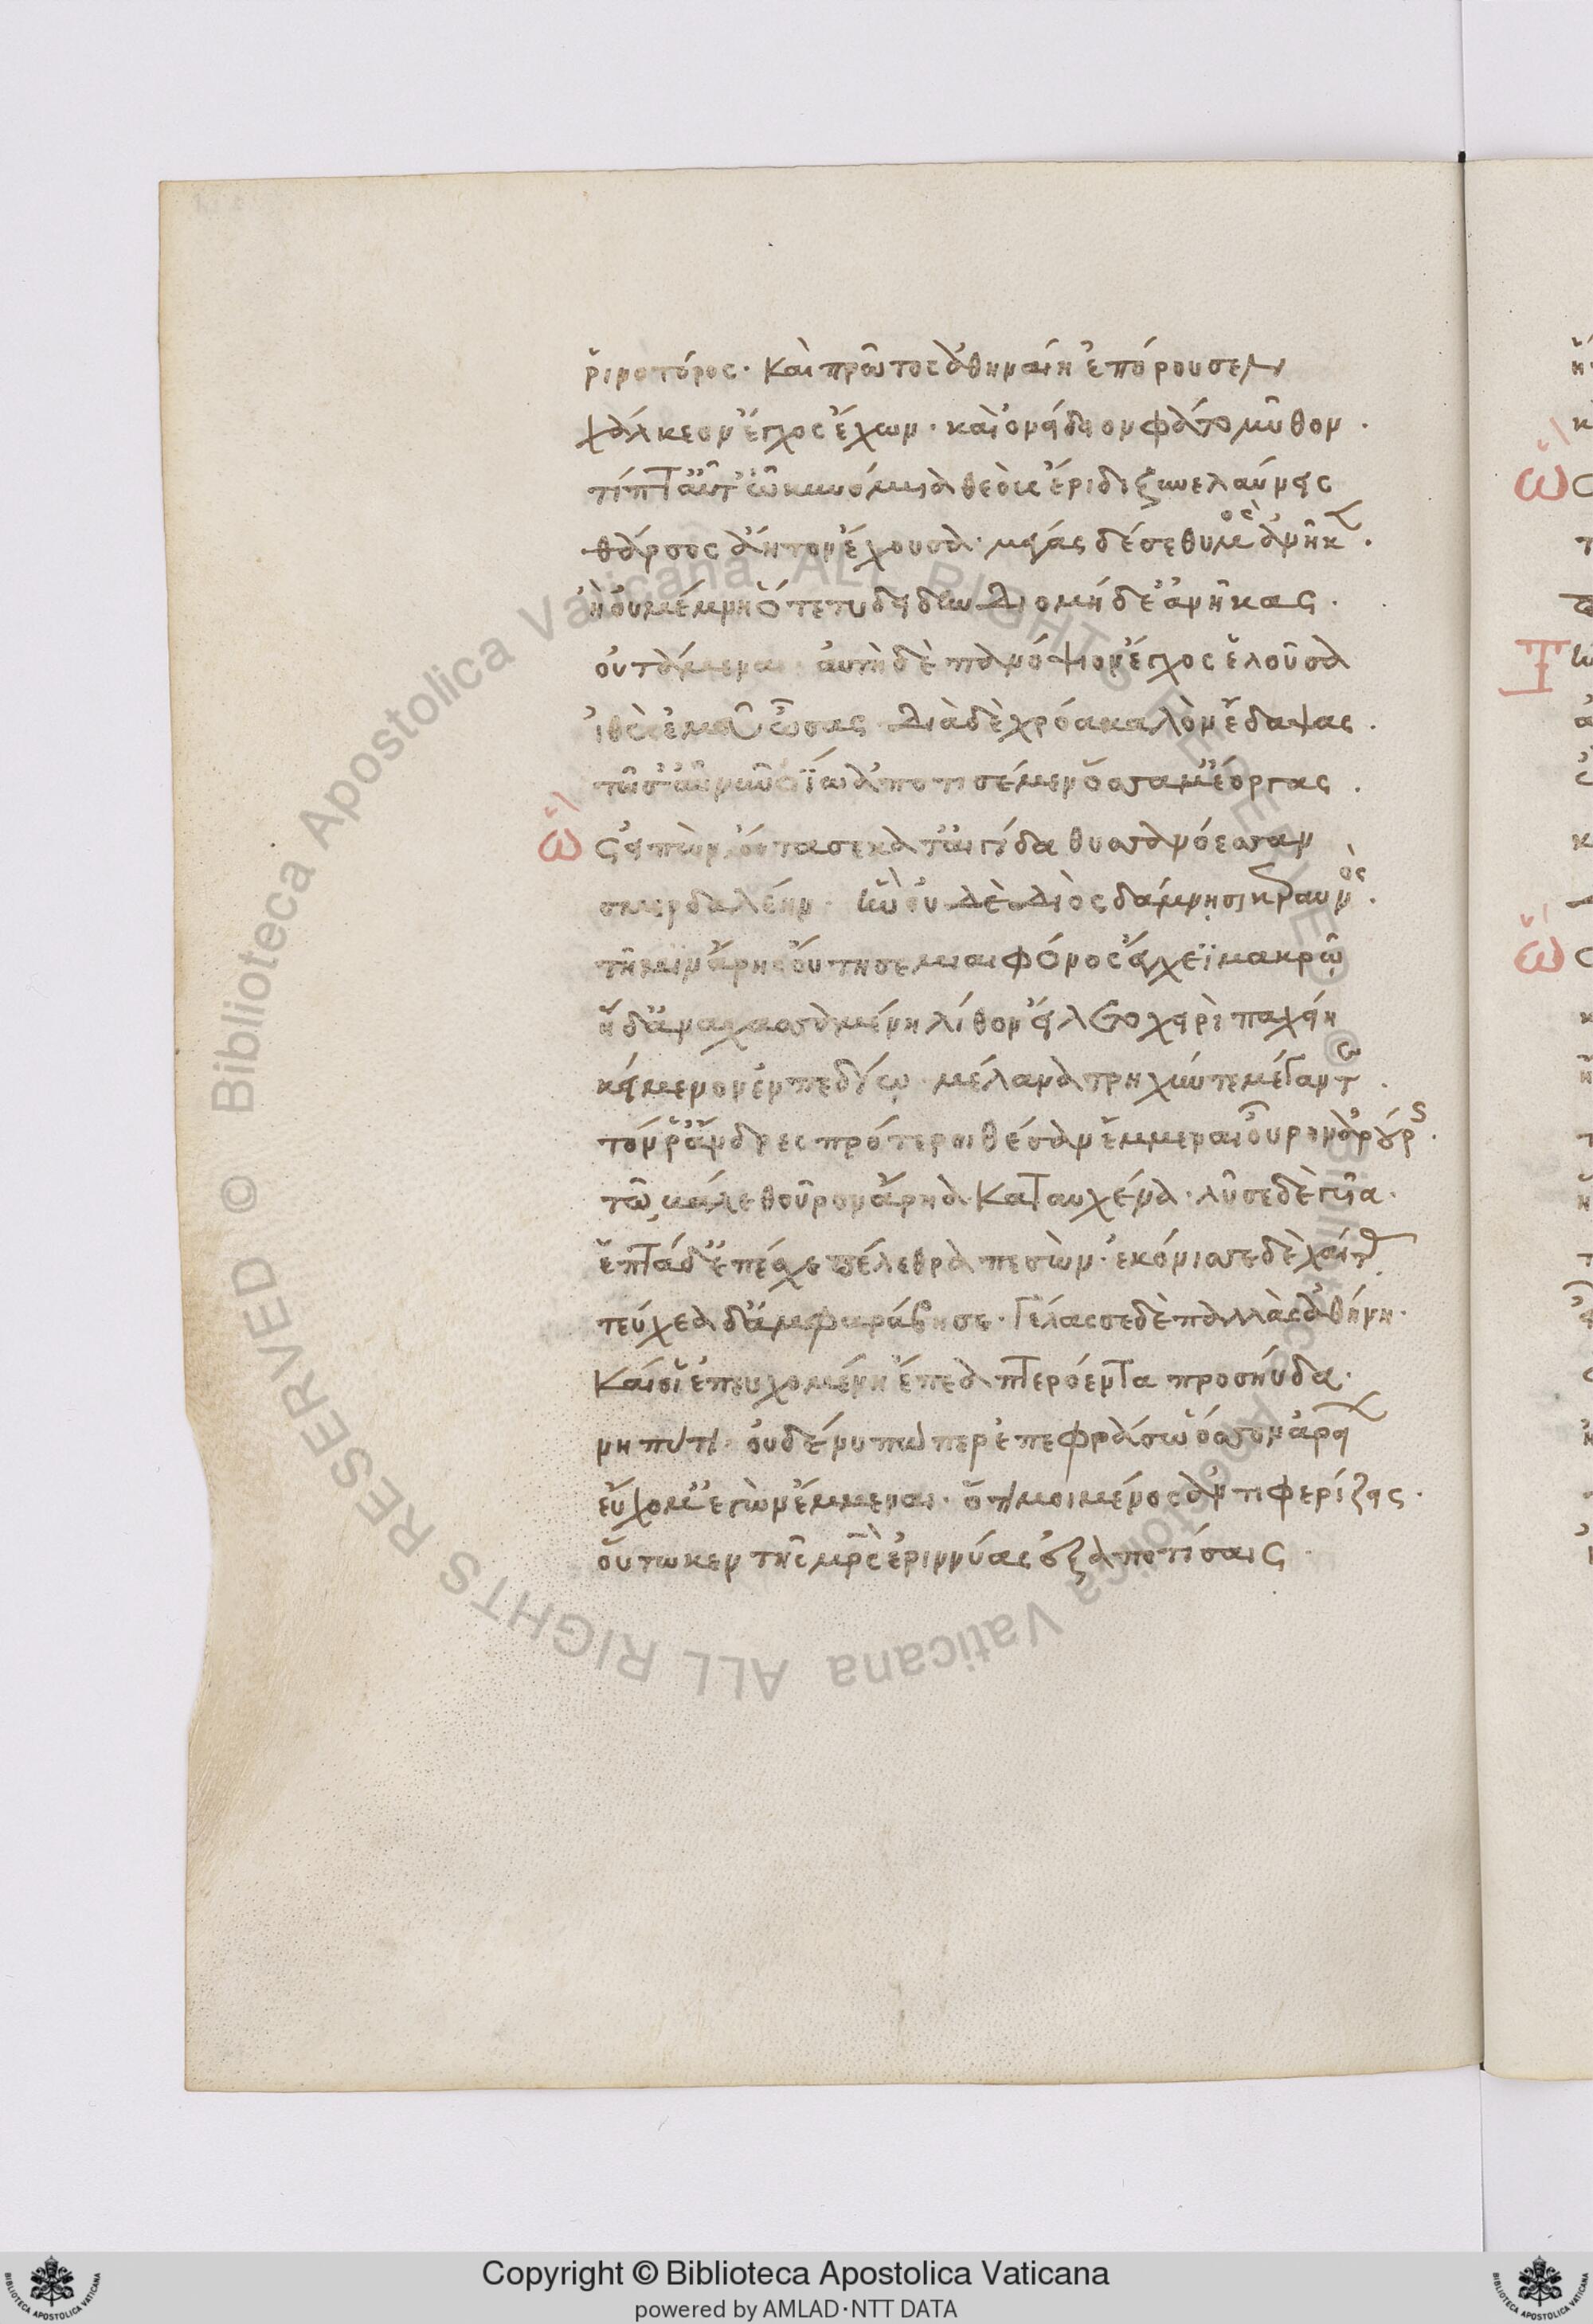 ῥινοτόρος· καὶ πρῶτος ἀθηναίη ἐπόρουσεν
χάλκεον ἔγχος ἔχων· καὶ ὀνείδειον φάτο μῦθον·
τίπτ' αὖτ' ὦ κυνόμυια θεοὺς ἔριδι ξυνελαύνεις
θάρσος ἄητον ἔχουσα· μέγας δέ σε θυμὸς ἀνῆκεν·
ἦ οὐ μέμνῃ ὅτε τυδείδην διομήδε' ἀνῆκας·
οὐτάμεναι· αὐτὴ δὲ πανόψιον ἔγχος ἑλοῦσα
ἰθὺς ἐμεῦ ὦσας διὰ δὲ χρόα καλὸν ἔδαψας·
τῶ σ' αὖ νῦν ὀΐω ἀποτισέμεν ὅσσα μ' ἔοργας·
ὣς εἰπὼν οὔτασε κατ' αἰγίδα θυσσανόεσσαν
σμερδαλέην· ἣν οὐδὲ διὸς δάμνησι κεραυνός·
τῇ μιν ἄρης οὔτησε μιαιφόνος ἔγχεϊ μακρῷ
ἡ δ' ἀναχασσαμένη λίθον εἵλετο χειρὶ παχείῃ
κείμενον ἐν πεδίῳ μέλανα τρηχύν τε μέγαν τε·
τόν ῥ' ἄνδρες πρότεροι θέσαν ἔμμεναι οὖρον ἀρούρης·
τῷ βάλε θοῦρον ἄρηα κατ' αὐχένα· λῦσε δὲ γυῖα·
ἑπτὰ δ' ἐπέσχε πέλεθρα πεσὼν· ἐκόνισσε δὲ χαίτας
τεύχεα δ' ἀμφαράβησε· γέλασσε δὲ παλλὰς ἀθήνη·
καί οἱ ἐπευχομένη ἔπεα πτερόεντα προσηύδα·
νηπύτι' οὐδέ νυ πώ περ ἐπεφράσω ὅσσον ἀρείων
εὔχομ' ἐγὼν ἔμμεναι· ὅτι μοι μένος ἀντιφερίζεις·
οὕτω κεν τῆς μρὸς ἐριννύας ἐξαποτίνοις